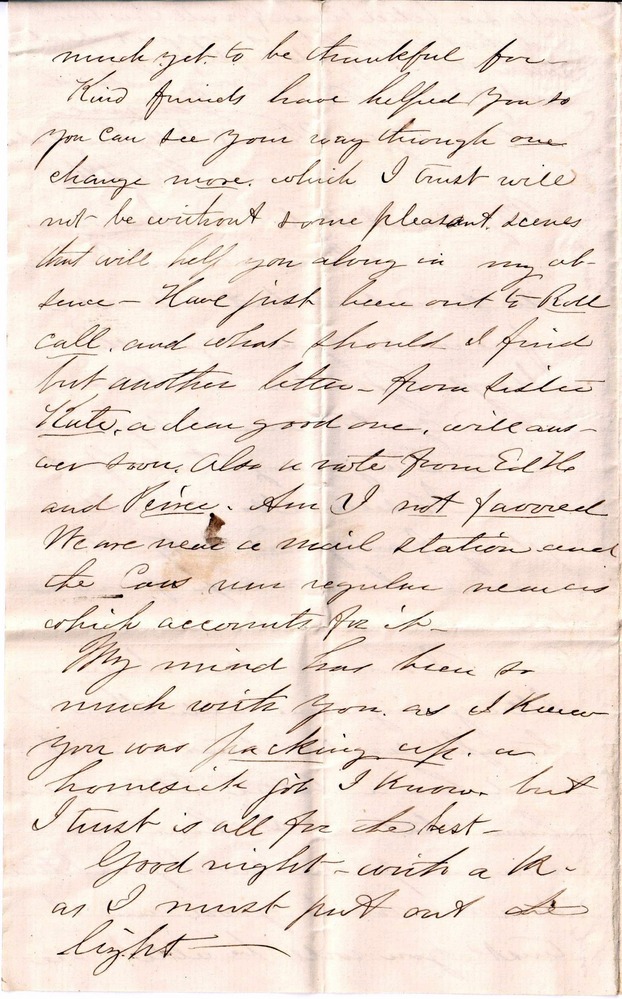 much yet to be thankful for -
Kind friends have helped you so
you can see your way through one
change more. which I trust will
not be without some pleasant. scenes
that will help you along in my ab-
sence - Have just been out to Roll
call, and what should I find
but another letter - from sister
Kate, a dear good one, will ans-
wer soon. Also a note from Ed
and Am I not favored
We are near a mail station and
the Cars run regular
which accounts for it -
My mind has been so
much with you. as I knew
you was packing up. a
homesick job I know. but
I trust is all for the best -
Good night - with a K -
as I must put out the
light